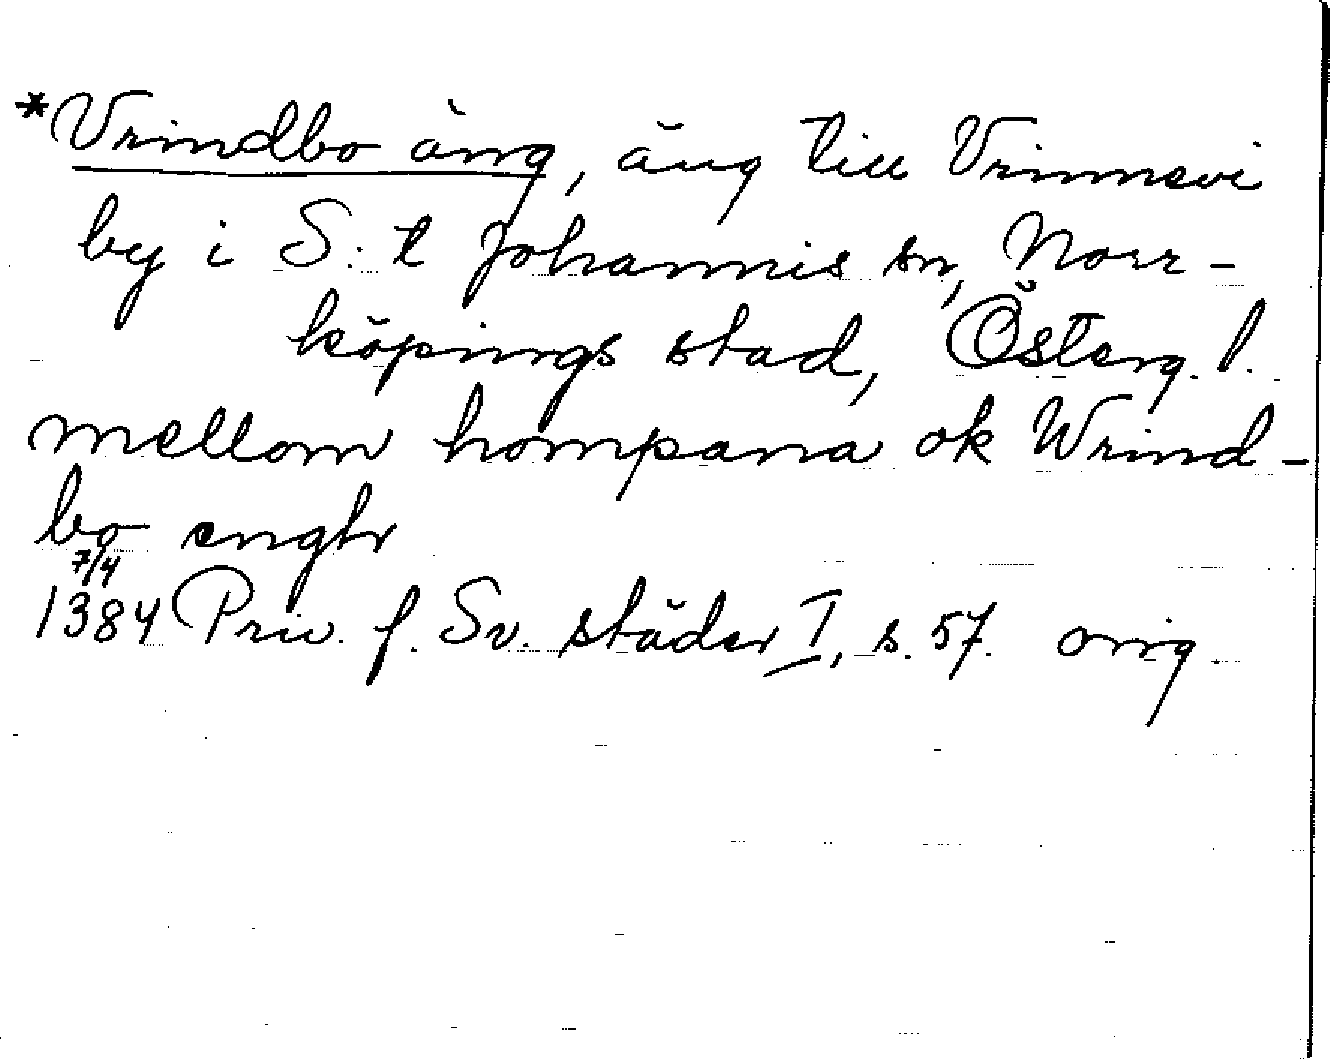 *Vrindbo äng, äng till Vrinnevi
by i S:t Johannis sn, Norr-
köpings stad, Österg. l.
mellom hompana ok Wrind-
bo enghr
7/4
1384 Priv. f. Sv. städer I, s. 57. orig.